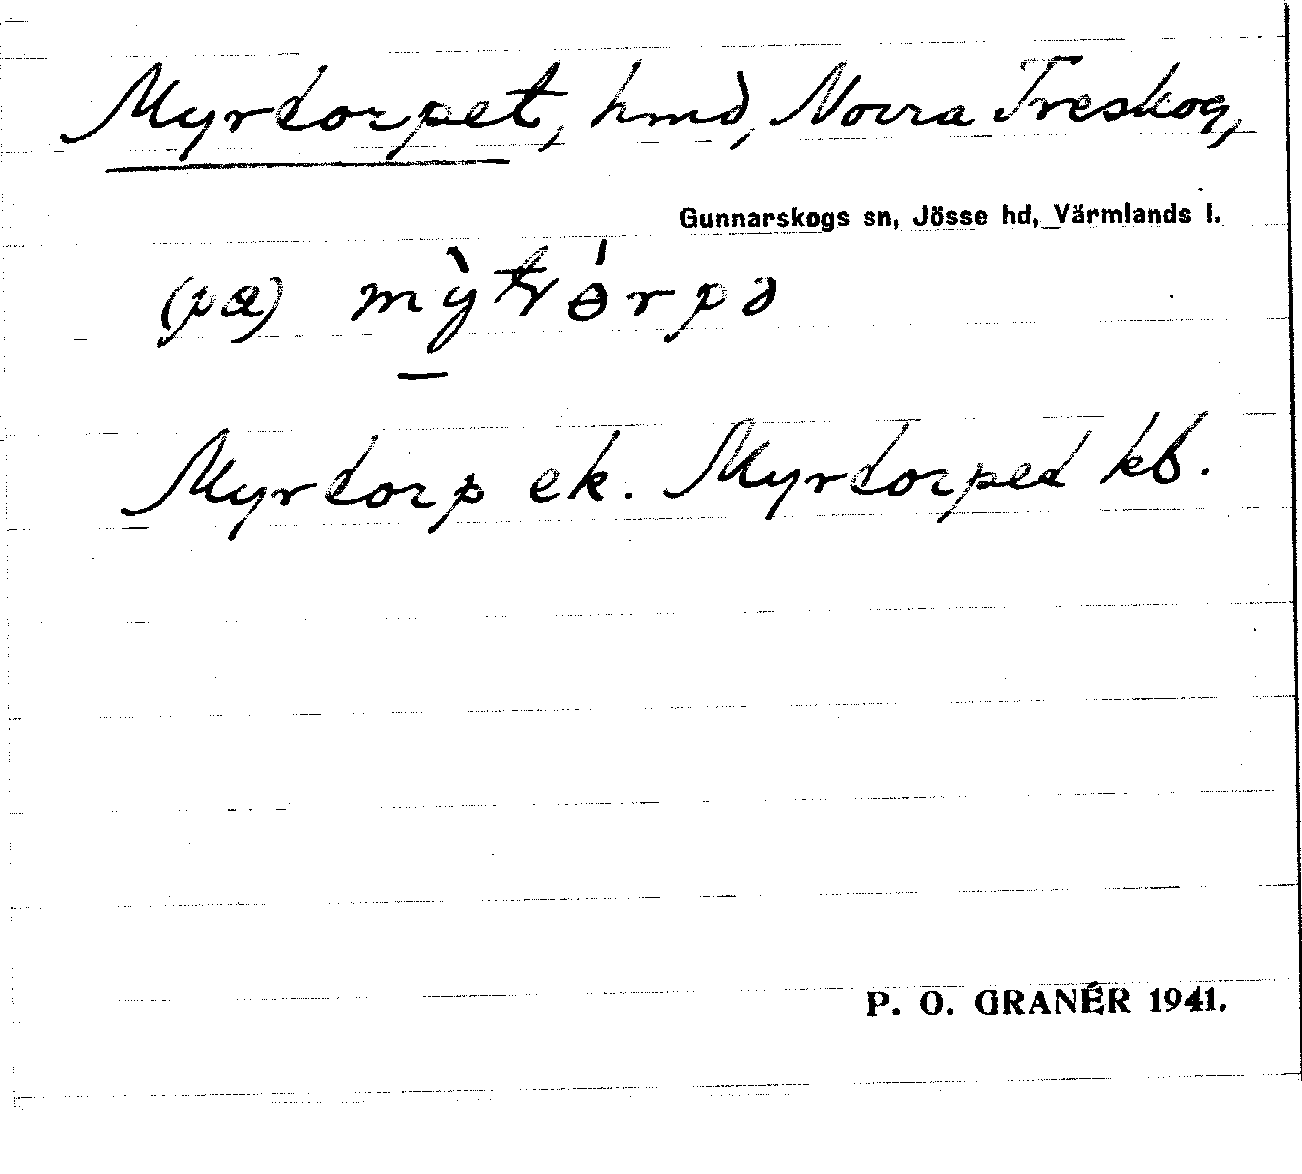 Myrtorpet, hmd, Norra Treskog,
Gunnarskogs sn, Jösse hd, Värmlands l.
(pæ)
Myrtorp ek. Myrtorpet kb.
P. O. GRANÉR 1941.